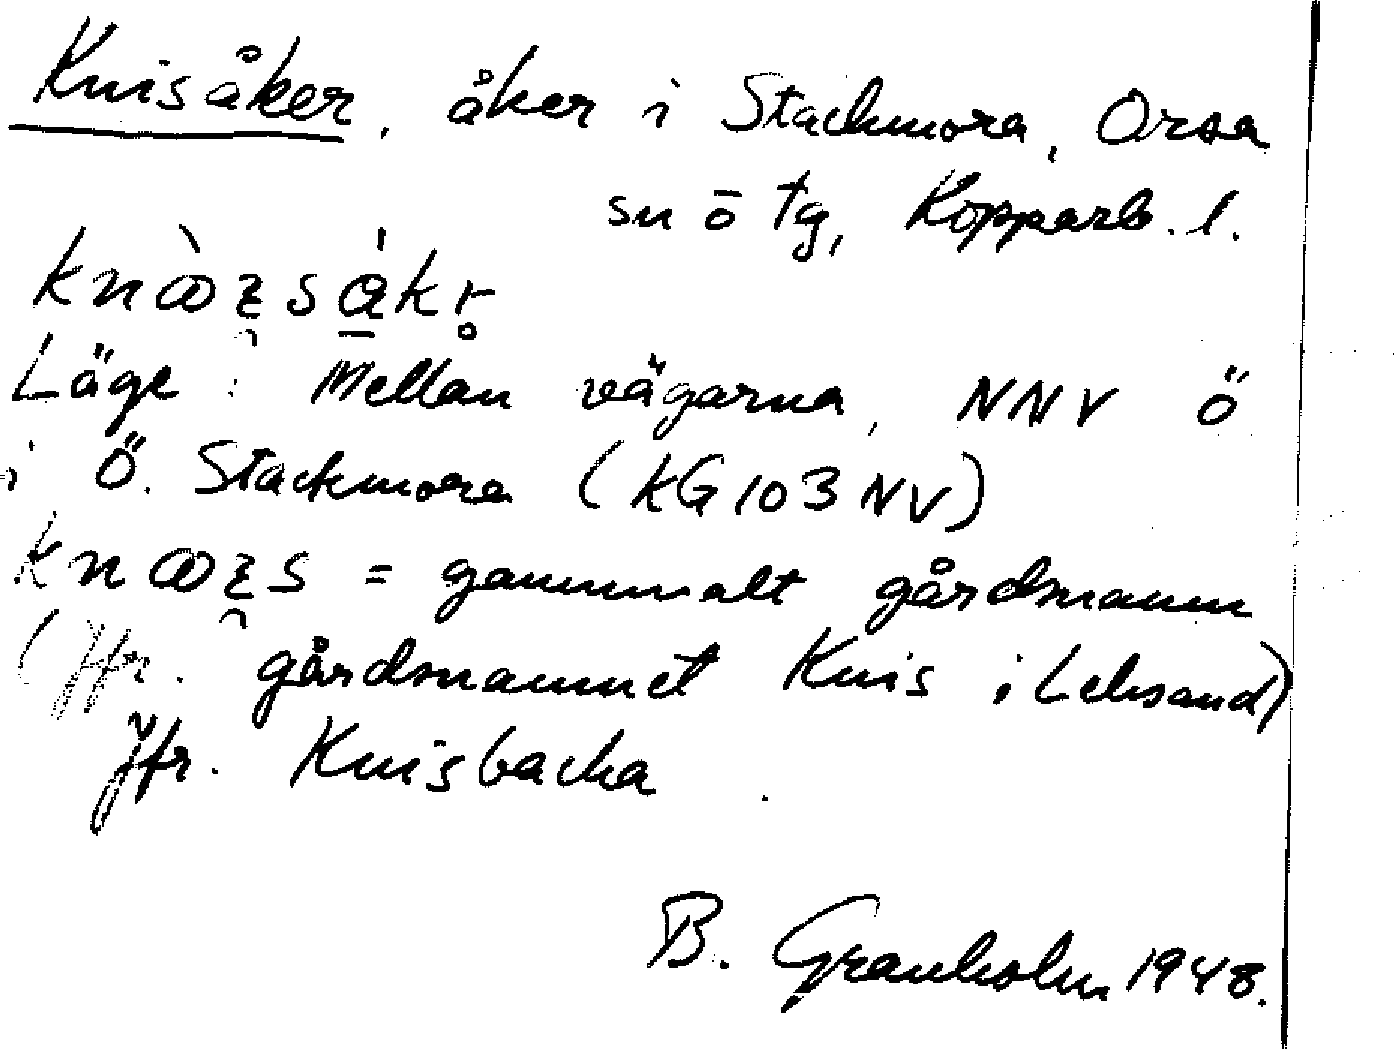 Knisåker, åker i Stackmora, Orsa
sn o tg, Kopparb. l.
Läge: Mellan vägarna, NNV ö
i Ö. Stackmora (KG103NV)
= gammalt gårdsnamn
(Jfr. gårdsnamnet Knis i Leksand)
Jfr. Knisbacka
B. Granholm 1948.